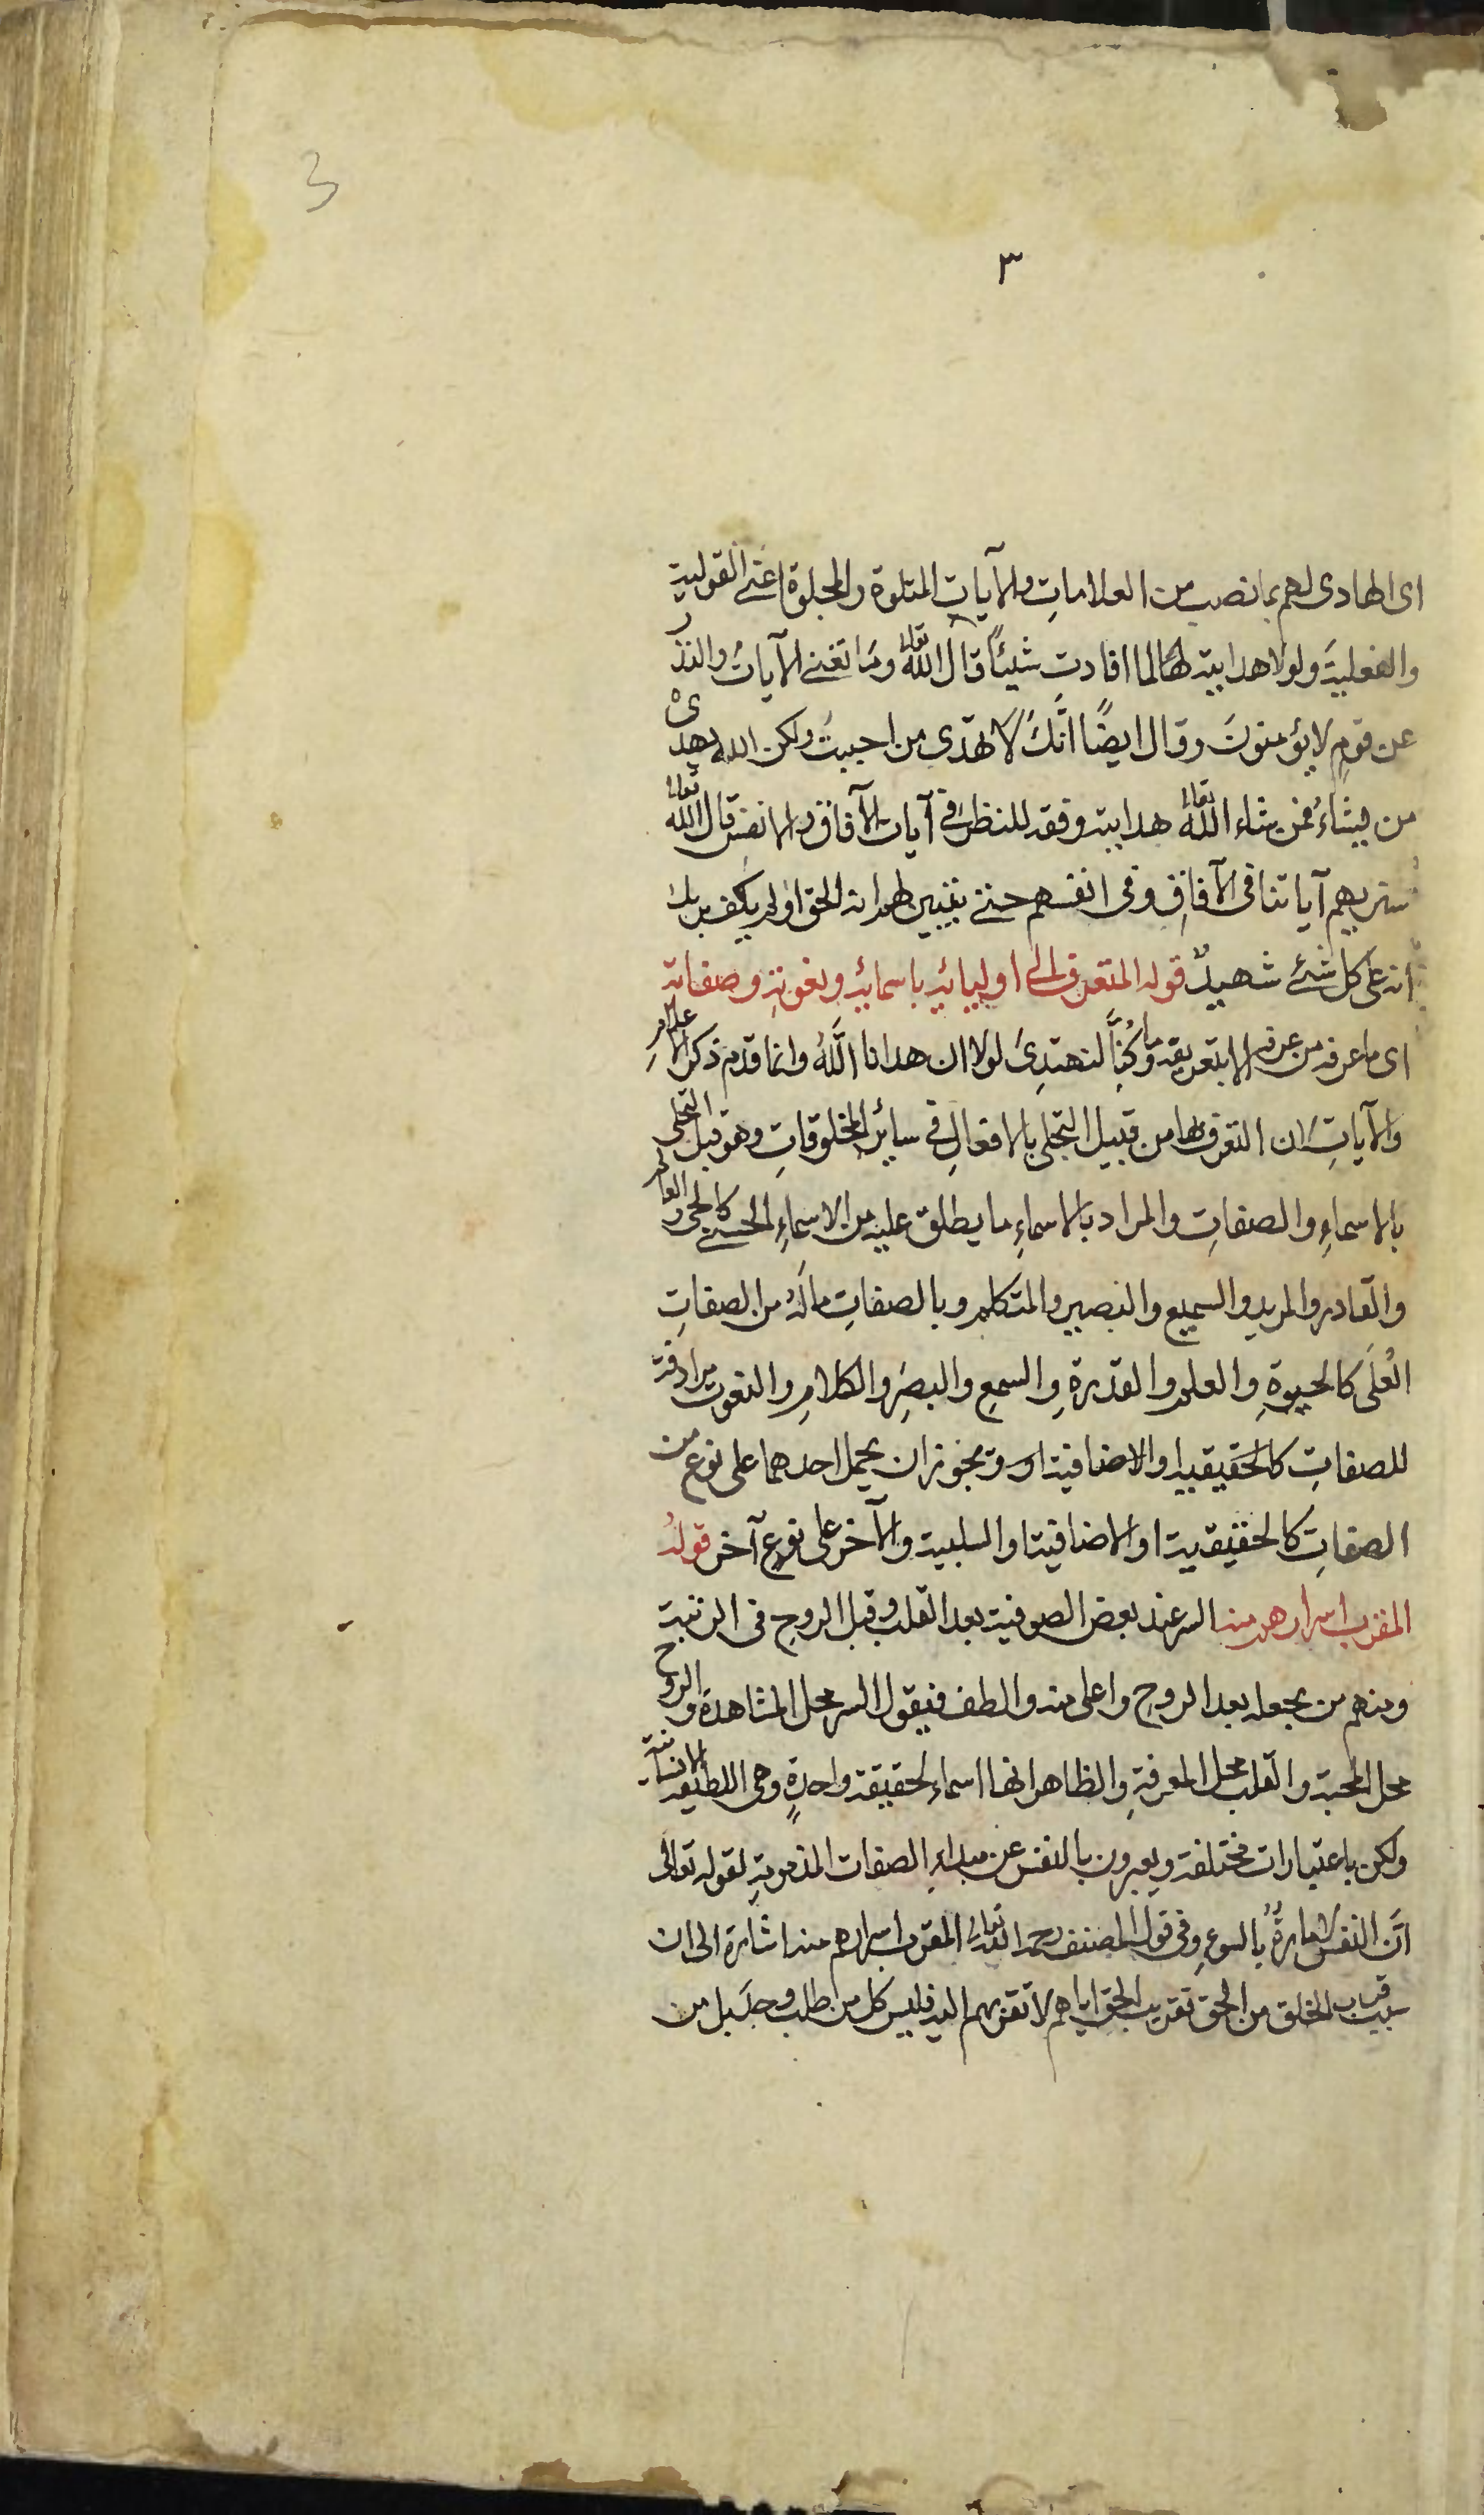 3
٣
اى الهادى لهم بما نصب من العلامات والآيات المتلوة والمجلوة اعنى القولية
والفعلية ولولا هدايته لها لما افادت شيئًا قال الله تعالى وما تغنى الآيات والنذر
عن قوم لا يؤمنون وقال ايضًا انّك لا تهدى من احببت ولكن الله يهدى
من يشاء فمن شاء الله تعالى هدايته وفقه للنظر فى آيات الآفاق والانفس قال الله تعالى
سنريهم آياتنا فى الآفاق وفى انفسهم حتى يتبين لهم انه الحق اولم يكف بربك
انه على كل شئ شهيد قوله المتعرف الى اوليائه باسمائه ونعوته وصفاته
اى ما عرفه من عرفه الا بتعريفه وما كنّا لنهتدى لولا ان هدانا الله وانما قدم ذكر الاعلام
والآيات لان التعرف بها من قبيل التجلى بالافعال فى سائر المخلوقات وهو قبل التجلى
بالاسماء والصفات والمراد بالاسماء ما يطلق عليه من الاسماء الحسنى كالحى والعالم
والقادر والمريد والسميع والبصير والمتكلم وبالصفات ماله من الصفات
العُلَى كالحيوة والعلم والقدرة والسمع والبصر والكلام والنعوت مرادفة
للصفات كالحقيقية او الاضافية او ويجوز ان يحمل احدهما على نوع من
الصفات كالحقيقية او الاضافية او السلبية والآخر على نوع آخر قوله
المقرب اسرارهم منه السر عند بعض الصوفية بعد القلب وقبل الروح فى الرتبة
ومنهم من يجعله بعد الروح واعلى منه والطف فيقول السر محل المشاهدة والروح
محل المحبة والقلب محل المعرفة والظاهر انها اسماء لحقيقة واحدة وهى اللطيفة الانسانية
ولكن باعتبارات مختلفة ويعبرون بالنفس عن مبداء الصفات المذمومة لقوله تعالى
انّ النفس لامارة بالسوء وفى قول المصنف رحمه الله تعالى المقرب اسرارهم منه اشارة الى ان
سبب قرب الخلق من الحق تقريب الحق اياهم لا تقربهم اليه فليس كل من طلب وجد بل من